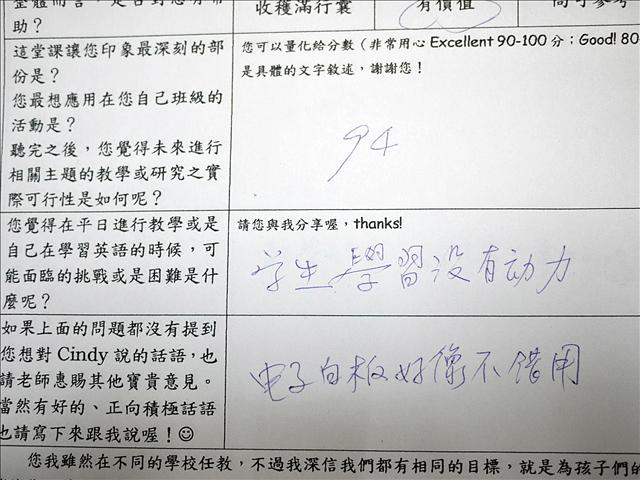 收穫滿行囊
有價值
助？
這堂課讓您印象最深刻的部
份是？
您最想應用在您自己班級的
活動是？
聽完之後，您覺得未來進行
相關主題的教學或研究之實
際可行性是如何呢？
您可以量化給分數（非常用心 Excellent 90-100 分；Good! 80-
是具體的文字敘述，謝謝您！
94
您覺得在平日進行教學或是
自己在學習英語的時候，可
能面臨的挑戰或是困難是什
麼呢？
請您與我分享喔，thanks!
学生學習没有动力
如果上面的問題都沒有提到
您想對 Cindy 說的話語，也
請老師惠賜其他寶貴意見。
當然有好的、正向積極話語
也請寫下來跟我說喔！☺
电子白板好像不错用
您我雖然在不同的學校任教，不過我深信我們都有相同的目標，就是為孩子們的